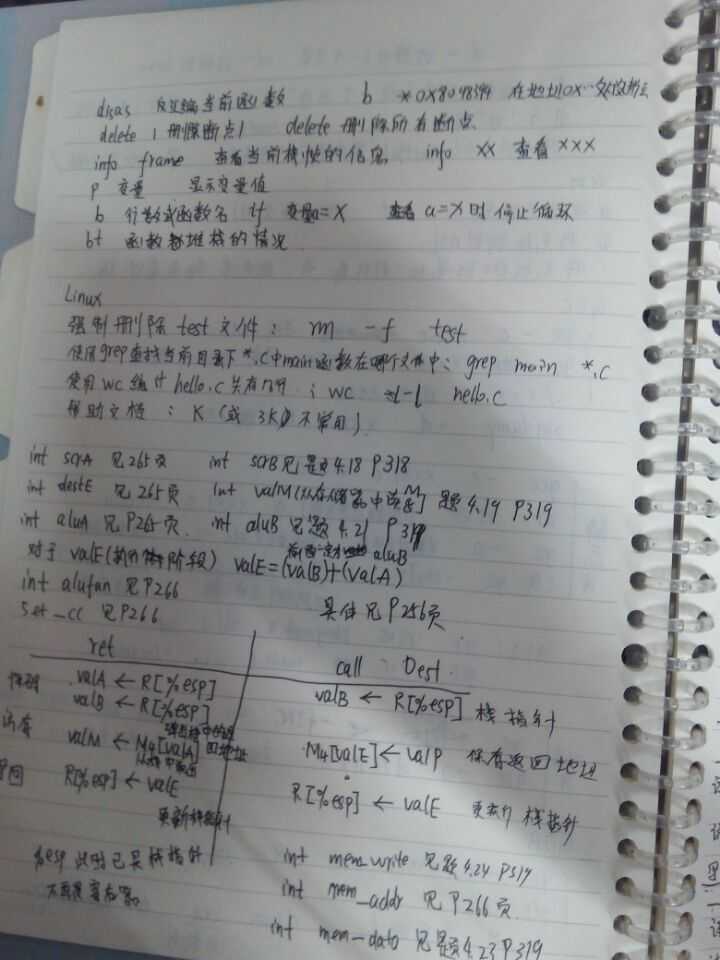 disas 反汇编当前函数 b *0X8048394 在地址0X…处设断点
delete 1 删除断点1 delete 删除所有断点
info frame 查看当前栈帧的信息 info XX 查看XXX
p 变量 显示变量值
b 行数或函数名 if 变量a=X 当a=X时停止循环
bt 函数堆栈的情况
Linux
强制删除test文件: rm -f test
使用grep查找当前目录下*.C中main函数在哪个文件中: grep main *.C
使用wc统计hello.c共有几行 ; wc -l hello.c
帮助文档 : K (或 3K 不常用)
int scrA 见265页 int scrB见题4.18 P318
int destE 见265页 int valM(从存储器中读) 题4.19 P319
int aluA 见P265页. int aluB 见题4.21 P319
对于valE(执行阶段) valE=(valB)+(valA) aluB
int alufan 见P266
set_cc 见P266 具体见P256页
ret call Dest
译码 valA ← R[%esp] valB ← R[%esp] 栈指针
valB ← R[%esp]
访存 valM ← M4[valA] 回地址 M4[valE] ← valP 保存返回地址
写回 R[%esp] ← valE R[%esp] ← valE 更新栈指针
更新栈指针
%esp 此时已是栈指针 int mem_write 见题4.24 P319
int mem_addr 见P266页
int mem_data 见题4.23 P319